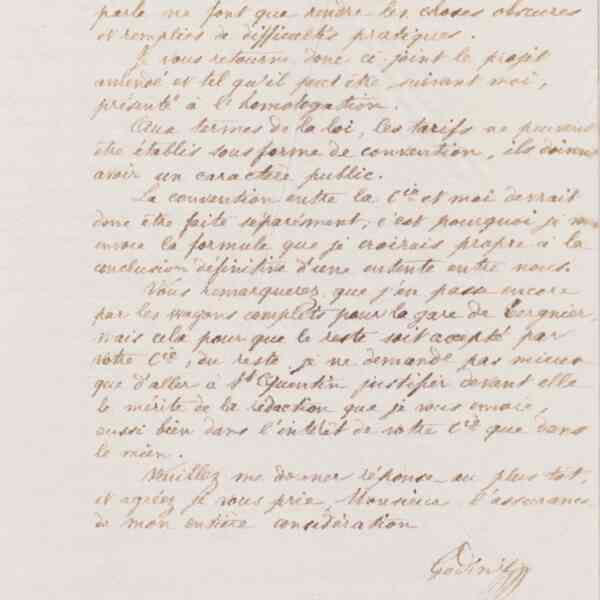 parle ne font que rendre les choses obscures
et remplies de difficultés pratiques.
Je vous retourne donc ci-joint le projet
amendé et tel qu'il peut être, suivant moi,
présenté à l'homologation.
Aux termes de la loi, les tarifs ne peuvent
être établis sous forme de convention, ils doivent
avoir un caractère public.
La convention entre la Cie et moi devrait
donc être faite séparément, c'est pourquoi je vous
envoie la formule que je croirais propre à la
conclusion définitive d'une entente entre nous.
Vous remarquerez que j'en passe encore
par les wagons complets pour la gare de Tergnier,
mais cela pour que le reste soit accepté par
votre Cie, du reste je ne demande pas mieux
que d'aller à St Quentin justifier devant elle
le mérite de la rédaction que je vous envoie,
aussi bien dans l'intérêt de votre Cie que dans
le mien.
Veuillez me donner réponse au plus tôt,
et agréez je vous prie, Monsieur l'assurance
de mon entière considération
Godin